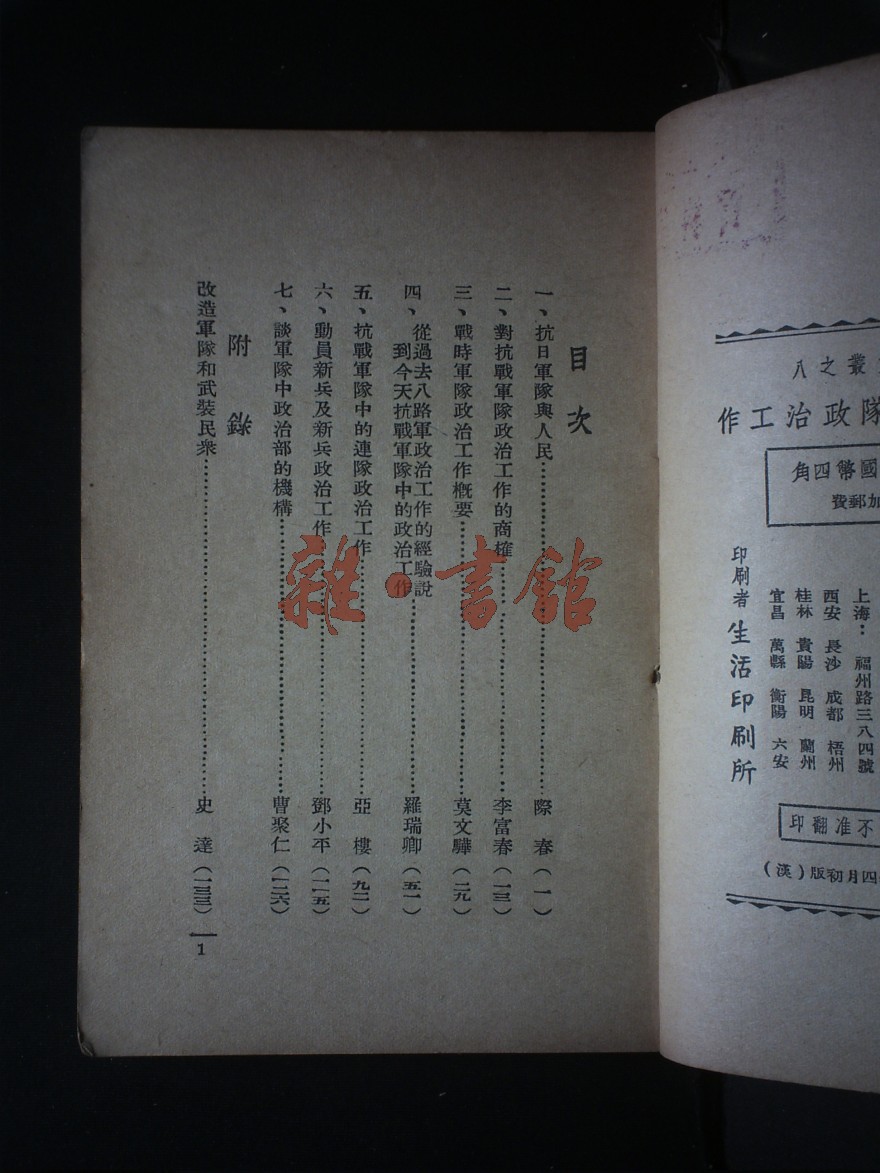 叢之八
隊政治工作
國幣四角
加郵費
上海：福州路三八四號
西安 長沙 成都 梧州
桂林 貴陽 昆明 蘭州
宜昌 萬縣 衡陽 六安
印刷者 生活印刷所
不准翻印
四月初版（漢）
目次
一、抗日軍隊與人民……際春（一）
二、對抗戰軍隊政治工作的商榷……李富春（一三）
三、戰時軍隊政治工作概要……莫文驊（二九）
四、從過去八路軍政治工作的經驗說
到今天抗戰軍隊中的政治工作……羅瑞卿（五一）
五、抗戰軍隊中的連隊政治工作……亞樓（九二）
六、動員新兵及新兵政治工作……鄧小平（一一五）
七、談軍隊中政治部的機構……曹聚仁（一二六）
附錄
改造軍隊和武裝民衆……史達（一三三）
1
雜·書館